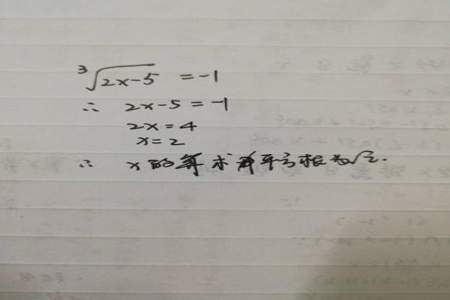 ³√2x-5 = -1
∴ 2x-5 = -1
2x=4
x=2
∴ x的算术平方根为√2.